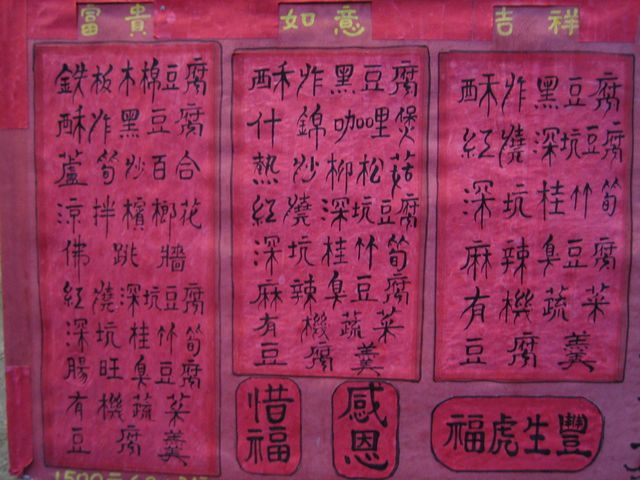 富貴
鉄板木棉豆腐
酥炸黑豆腐
蘆筍炒百合
涼拌檳榔花
佛跳牆
紅燒深坑豆腐
深坑桂竹筍
腸旺臭豆腐
有機蔬菜
豆腐羹
1500元
如意
酥炸黑豆腐
什錦咖哩煲
熱炒柳松菇
紅燒深坑豆腐
深坑桂竹筍
麻辣臭豆腐
有機蔬菜
豆腐羹
吉祥
酥炸黑豆腐
紅燒深坑豆腐
深坑桂竹筍
麻辣臭豆腐
有機蔬菜
豆腐羹
惜福
感恩
福虎生豐